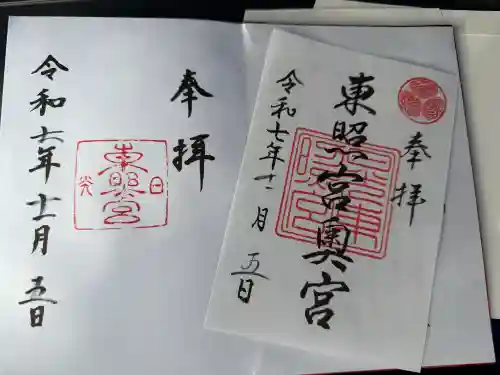 奉拝
日光
東照宮
令和六年十一月五日
奉拝
東照宮奥宮
令和七年十一月五日